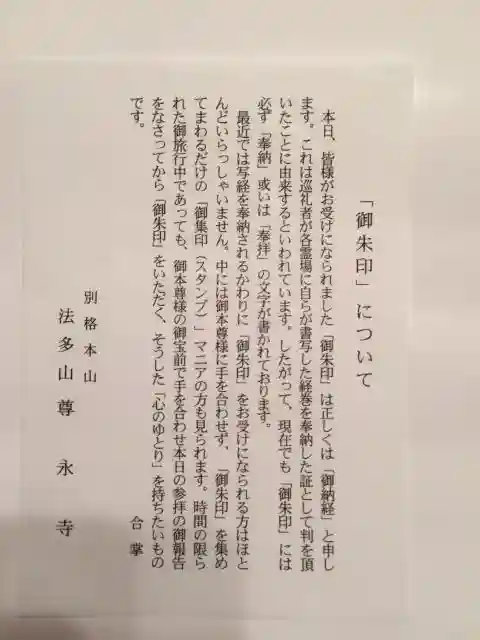 「御朱印」について
本日、皆様がお受けになられました「御朱印」は正しくは「御納経」と申し
ます。これは巡礼者が各霊場に自らが書写した経巻を奉納した証として判を頂
いたことに由来するといわれています。したがって、現在でも「御朱印」には
必ず「奉納」或いは「奉拝」の文字が書かれております。
最近では写経を奉納されるかわりに「御朱印」をお受けになられる方はほと
んどいらっしゃいません。中には御本尊様に手を合わせず、「御朱印」を集め
てまわるだけの「御集印（スタンプ）」マニアの方も見られます。時間の限ら
れた御旅行中であっても、御本尊様の御宝前で手を合わせ本日の参拝の御報告
をなさってから「御朱印」をいただく、そうした「心のゆとり」を持ちたいもの
です。
合掌
別格本山
法多山尊永寺